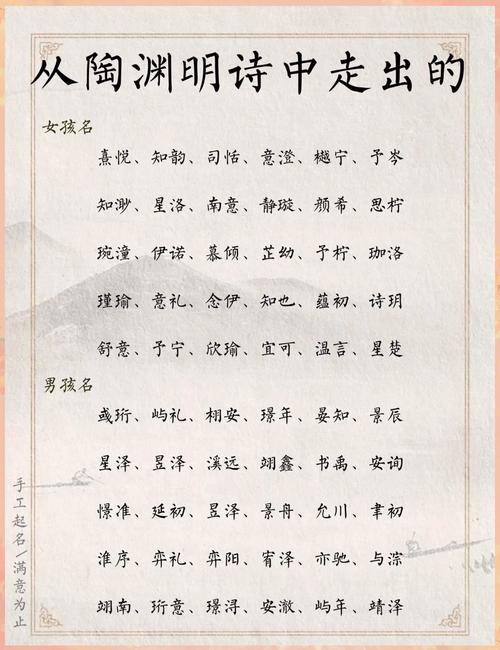 从陶渊明诗中走出的
女孩名
熹悦、知韵、司恬、意澄、樾宁、予岑
知渺、星洛、南意、静璇、颜希、思柠
琬潼、伊诺、慕倾、芷幼、予柠、珈洛
瑾瑜、意礼、念伊、知也、蕴初、诗玥
舒意、予宁、欣瑜、宜可、温言、星楚
男孩名
彧珩、屿礼、栩安、璟年、晏知、景辰
星泽、昱泽、溪远、翊鑫、书禹、安询
憬准、延初、昱泽、景舟、允川、聿初
淮序、弈礼、弈阳、宥泽、亦驰、与淙
翊南、珩意、璟浔、安澈、屿年、靖泽
手工起名/满意为止